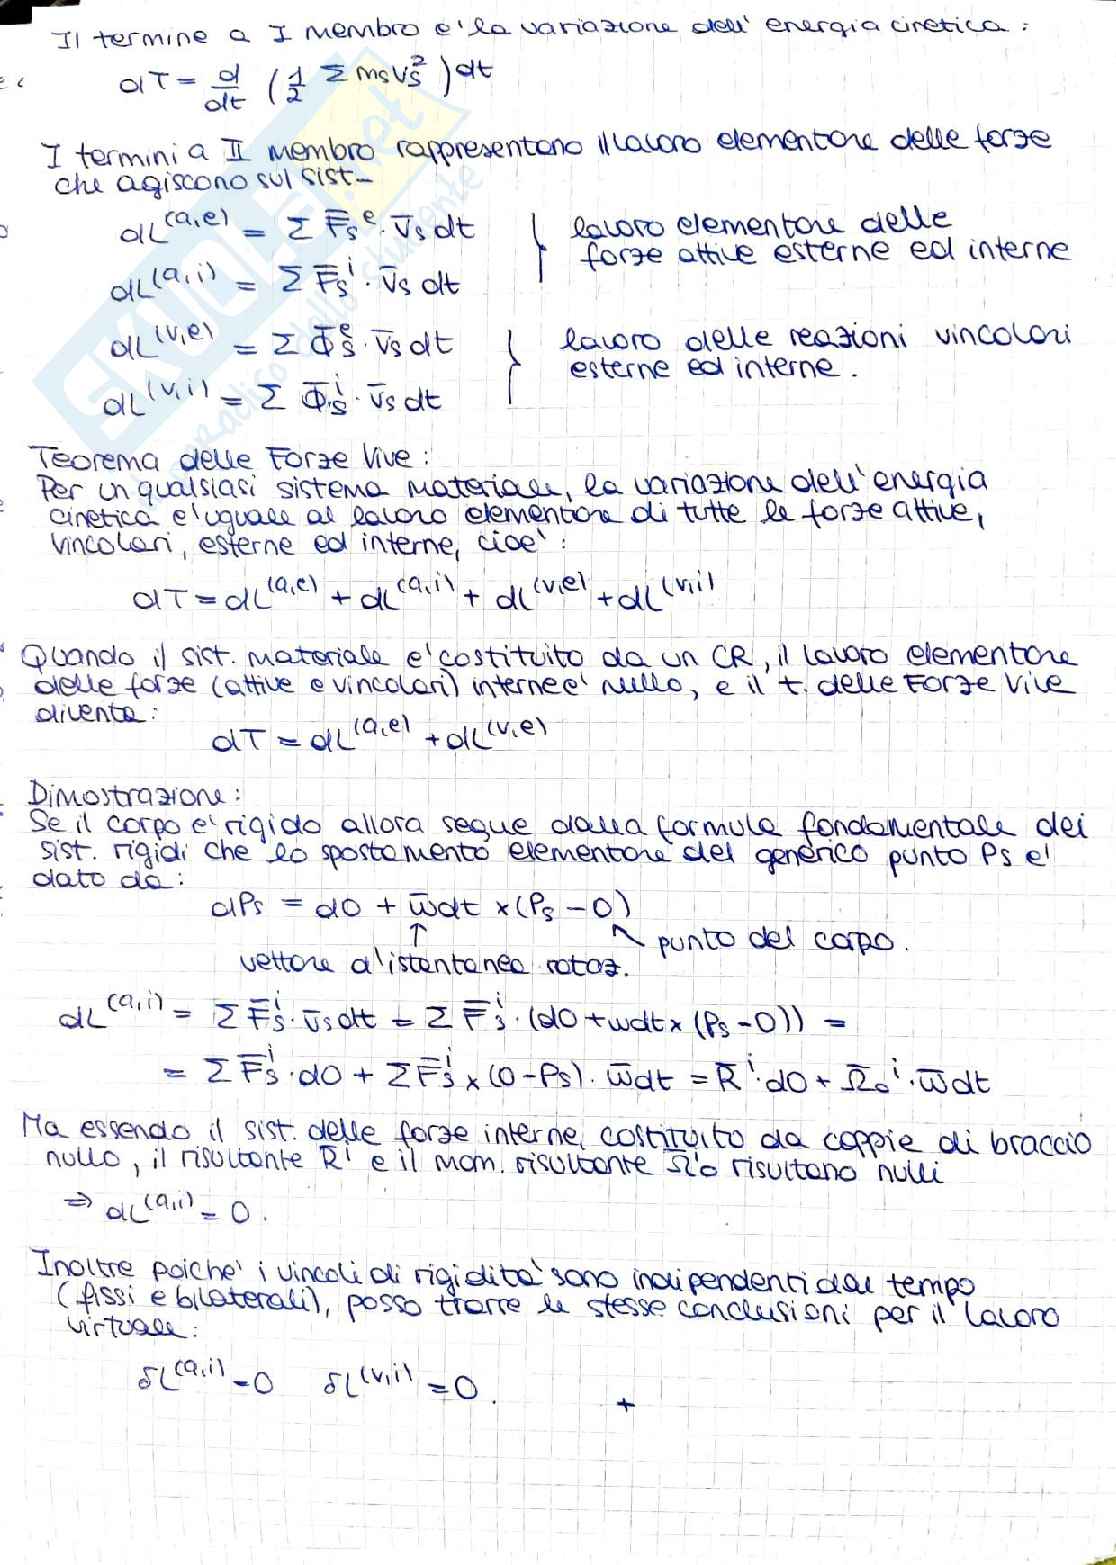 Il termine a I membro e' la variazione dell' energia cinetica:
dT = d/dt (1/2 Σ ms vs²) dt
I termini a II membro rappresentano il lavoro elementare delle forze
che agiscono sul sist-
dL^(a,e) = Σ F̄s^e · v̄s dt } lavoro elementare delle
forze attive esterne ed interne
dL^(a,i) = Σ F̄s^i · v̄s dt
dL^(v,e) = Σ Φ̄s^e · v̄s dt } lavoro delle reazioni vincolari
esterne ed interne.
dL^(v,i) = Σ Φ̄s^i · v̄s dt
Teorema delle Forze Vive:
Per un qualsiasi sistema materiale, la variazione dell'energia
cinetica e' uguale al lavoro elementare di tutte le forze attive,
vincolari, esterne ed interne, cioe':
dT = dL^(a,e) + dL^(a,i) + dL^(v,e) + dL^(v,i)
Quando il sist. materiale e' costituito da un CR, il lavoro elementare
delle forze (attive e vincolari) interne e' nullo, e il t. delle Forze Vive
diventa:
dT = dL^(a,e) + dL^(v,e)
Dimostrazione:
Se il corpo e' rigido allora segue dalla formula fondamentale dei
sist. rigidi che lo spostamento elementare del generico punto Ps e'
dato da:
dPs = dO + ω̄dt × (Ps - O)
↑ ↖ punto del corpo.
vettore d'istantanea rotaz.
dL^(a,i) = Σ F̄s^i · v̄s dt = Σ F̄s^i · (dO + ωdt × (Ps - O)) =
= Σ F̄s^i · dO + Σ F̄s^i × (O - Ps) · ω̄dt = R̄^i · dO + Ω̄o^i · ω̄dt
Ma essendo il sist. delle forze interne costituito da coppie di braccio
nullo, il risultante R̄^i e il mom. risultante Ω̄^i o risultano nulli
⇒ dL^(a,i) = 0.
Inoltre poiche' i vincoli di rigidita' sono indipendenti dal tempo
(fissi e bilaterali), posso trarre le stesse conclusioni per il lavoro
virtuale:
δL^(a,i) = 0 δL^(v,i) = 0.
+
SKUOLA.net